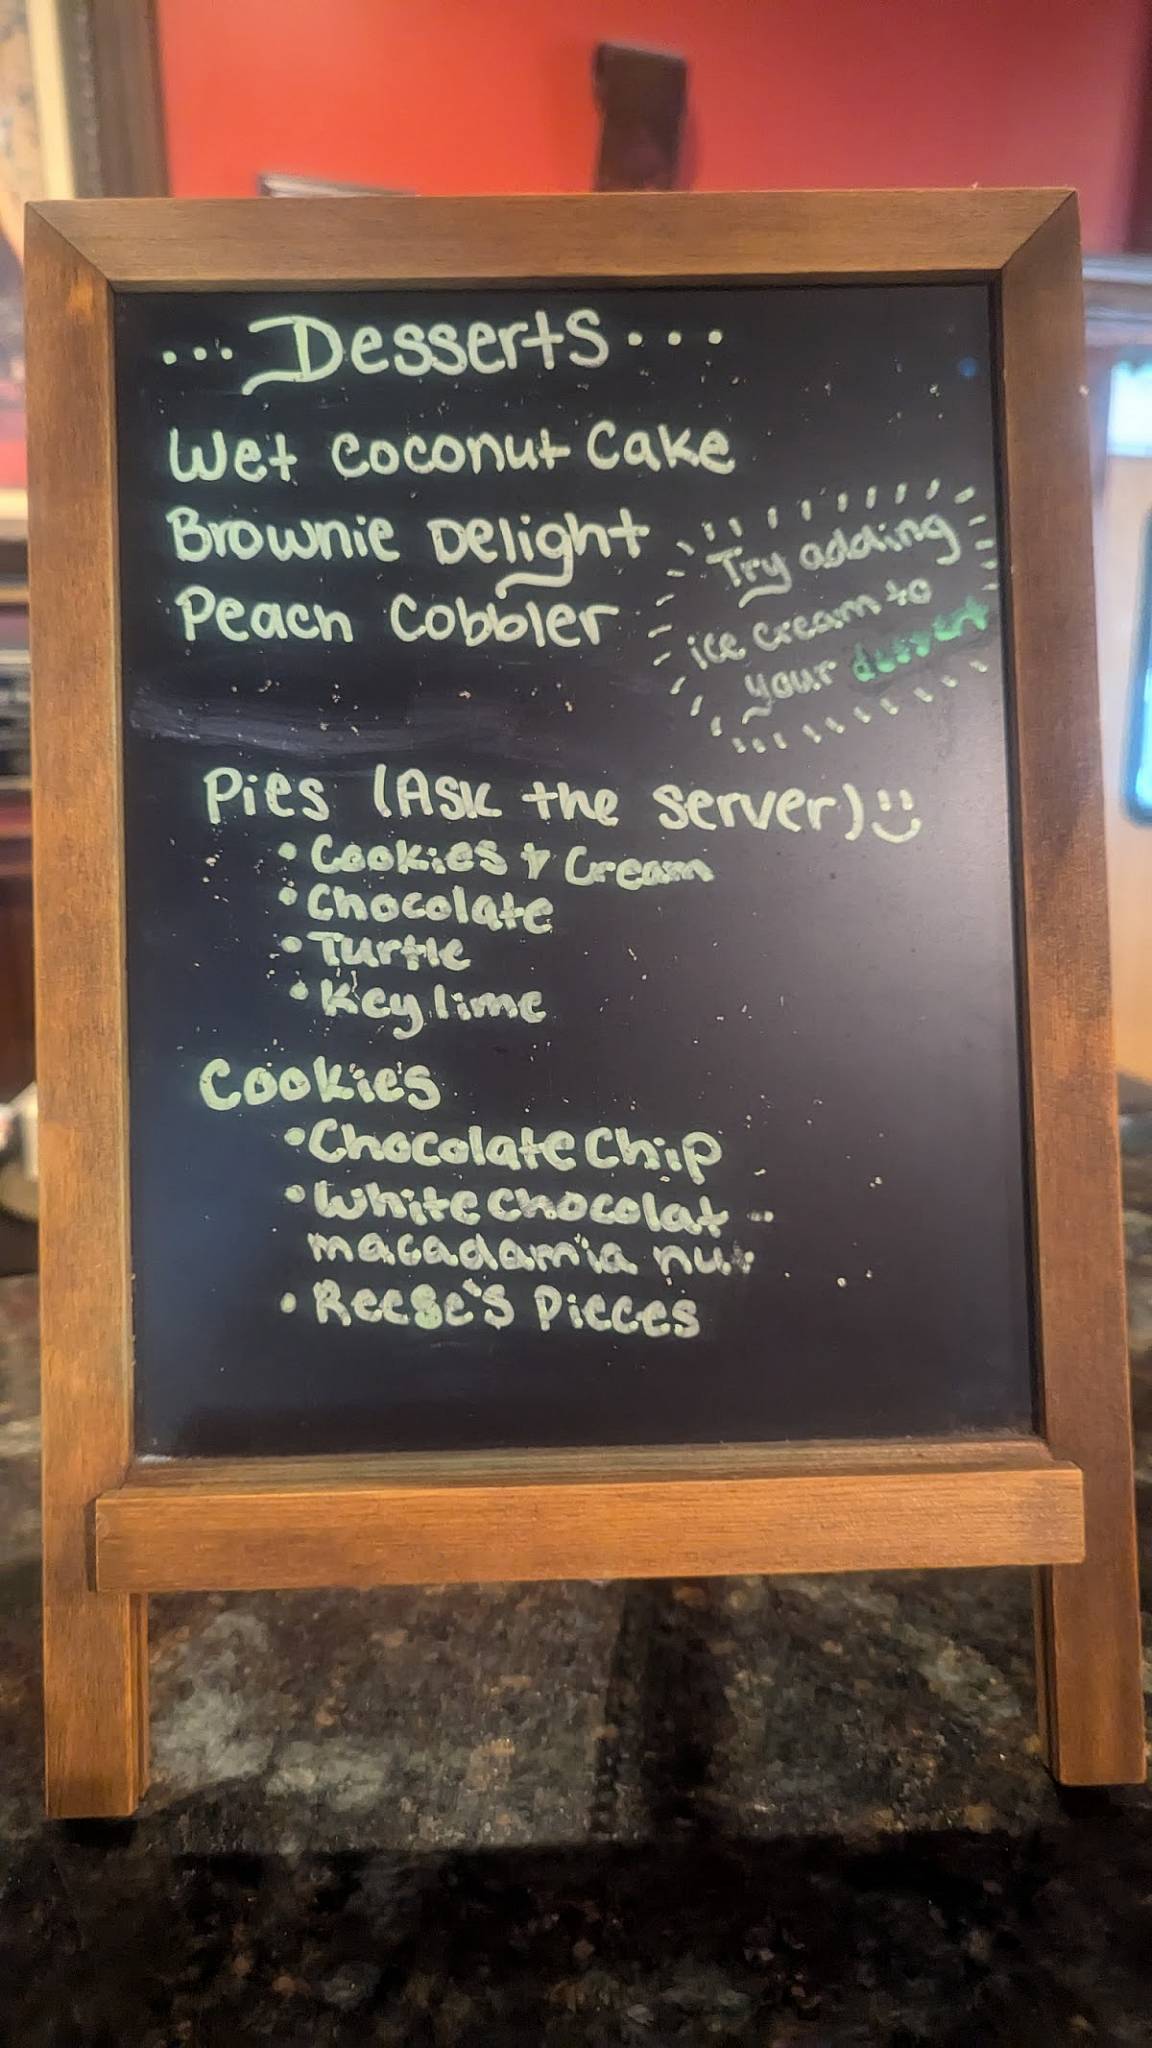 ... Desserts ...
Wet Coconut Cake
Brownie Delight
Peach Cobbler
Try adding
ice cream to
your dessert
Pies (Ask the server)
• Cookies & Cream
• Chocolate
• Turtle
• Key lime
Cookies
• Chocolate Chip
• White Chocolat
macadamia nut
• Reese's Pieces